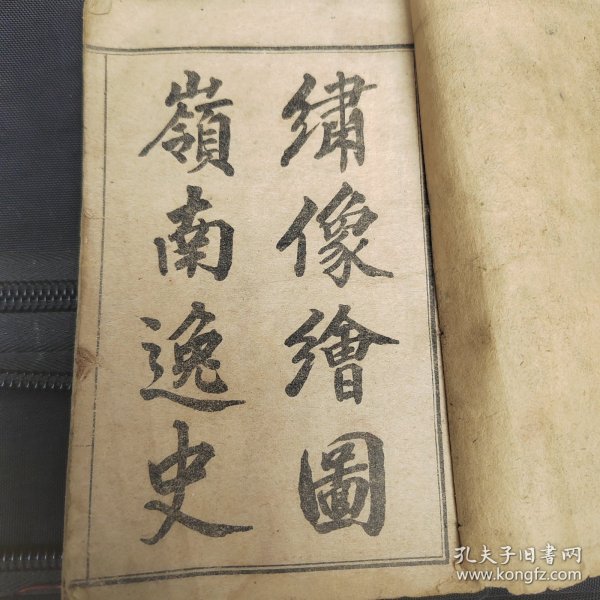 繡像繪圖
嶺南逸史
孔夫子旧书网
www.kongfz.com